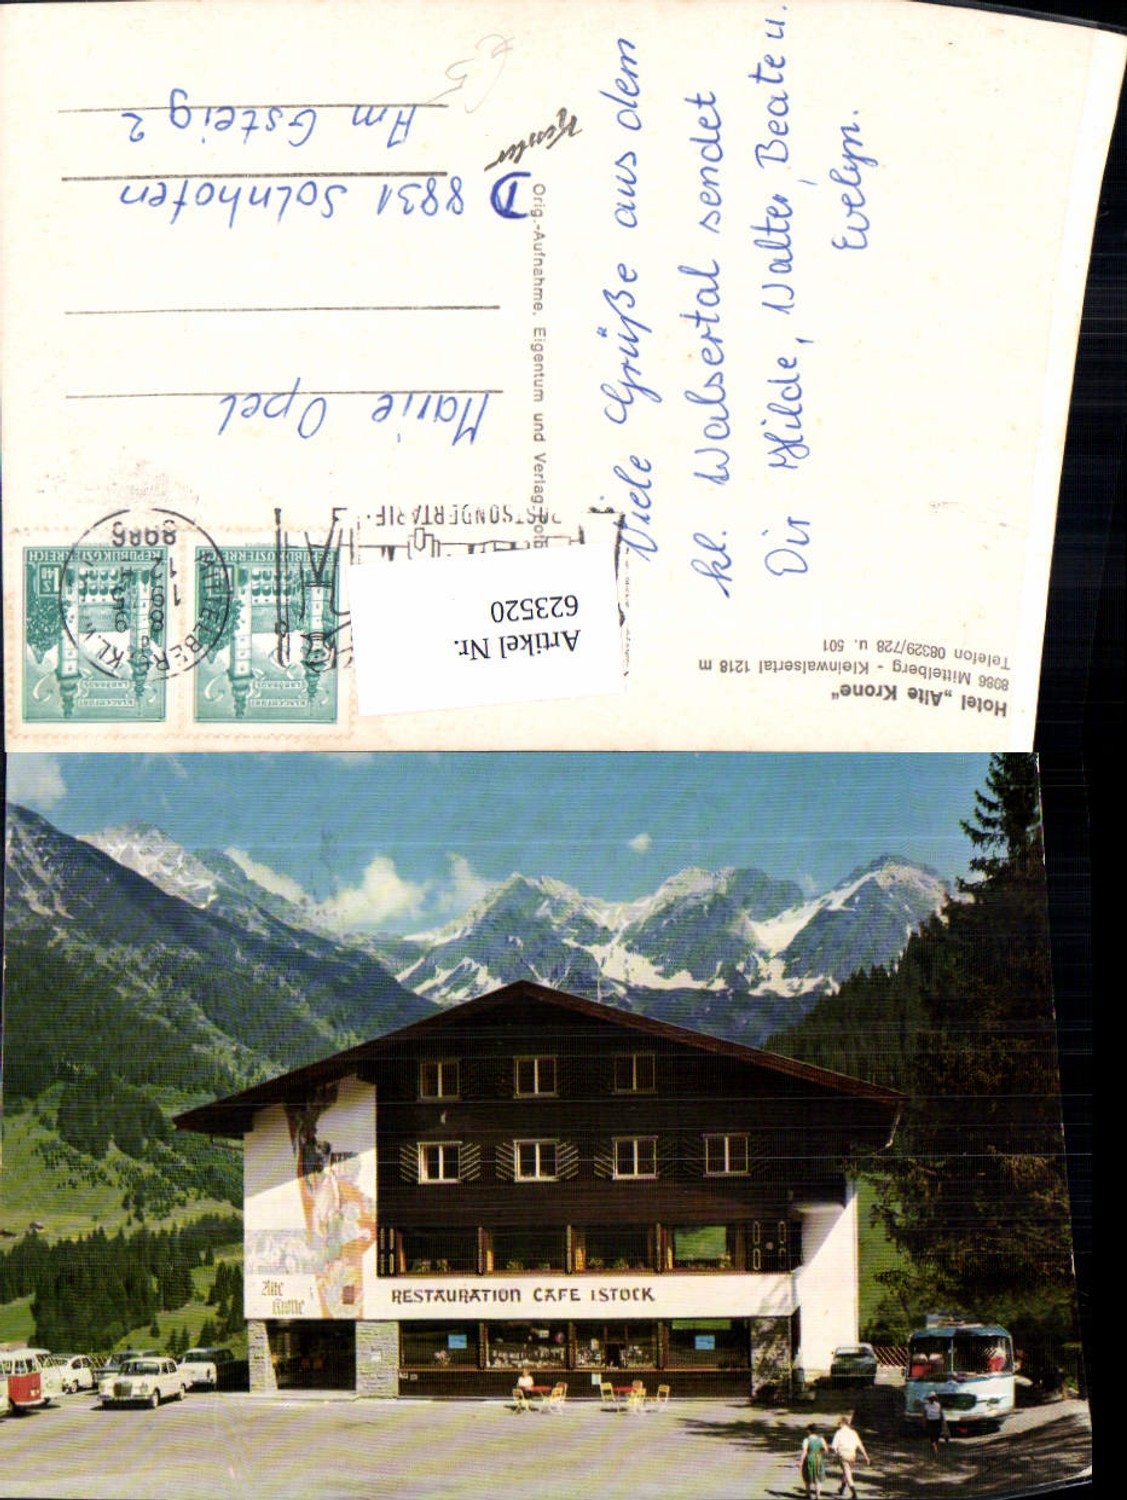 Hotel „Alte Krone“
8986 Mittelberg - Kleinwalsertal 1218 m
Telefon 08329/728 u. 501
Viele Grüße aus dem
kl. Walsertal sendet
Dir Hilde, Walter, Beate u.
Evelyn.
Orig.-Aufnahme, Eigentum und Verlag Foto
Kessler
Artikel Nr.
623520
POSTSONDERTARIF
8986
MITTELBERG
REPUBLIK ÖSTERREICH
KLAGENFURT
LANDHAUS
S 1.40
REPUBLIK ÖSTERREICH
KLAGENFURT
LANDHAUS
Marie Opel
D 8831 Solnhofen
Am Gsteig 2
€ 5
Alte
Krone
RESTAURATION CAFE 1 STOCK